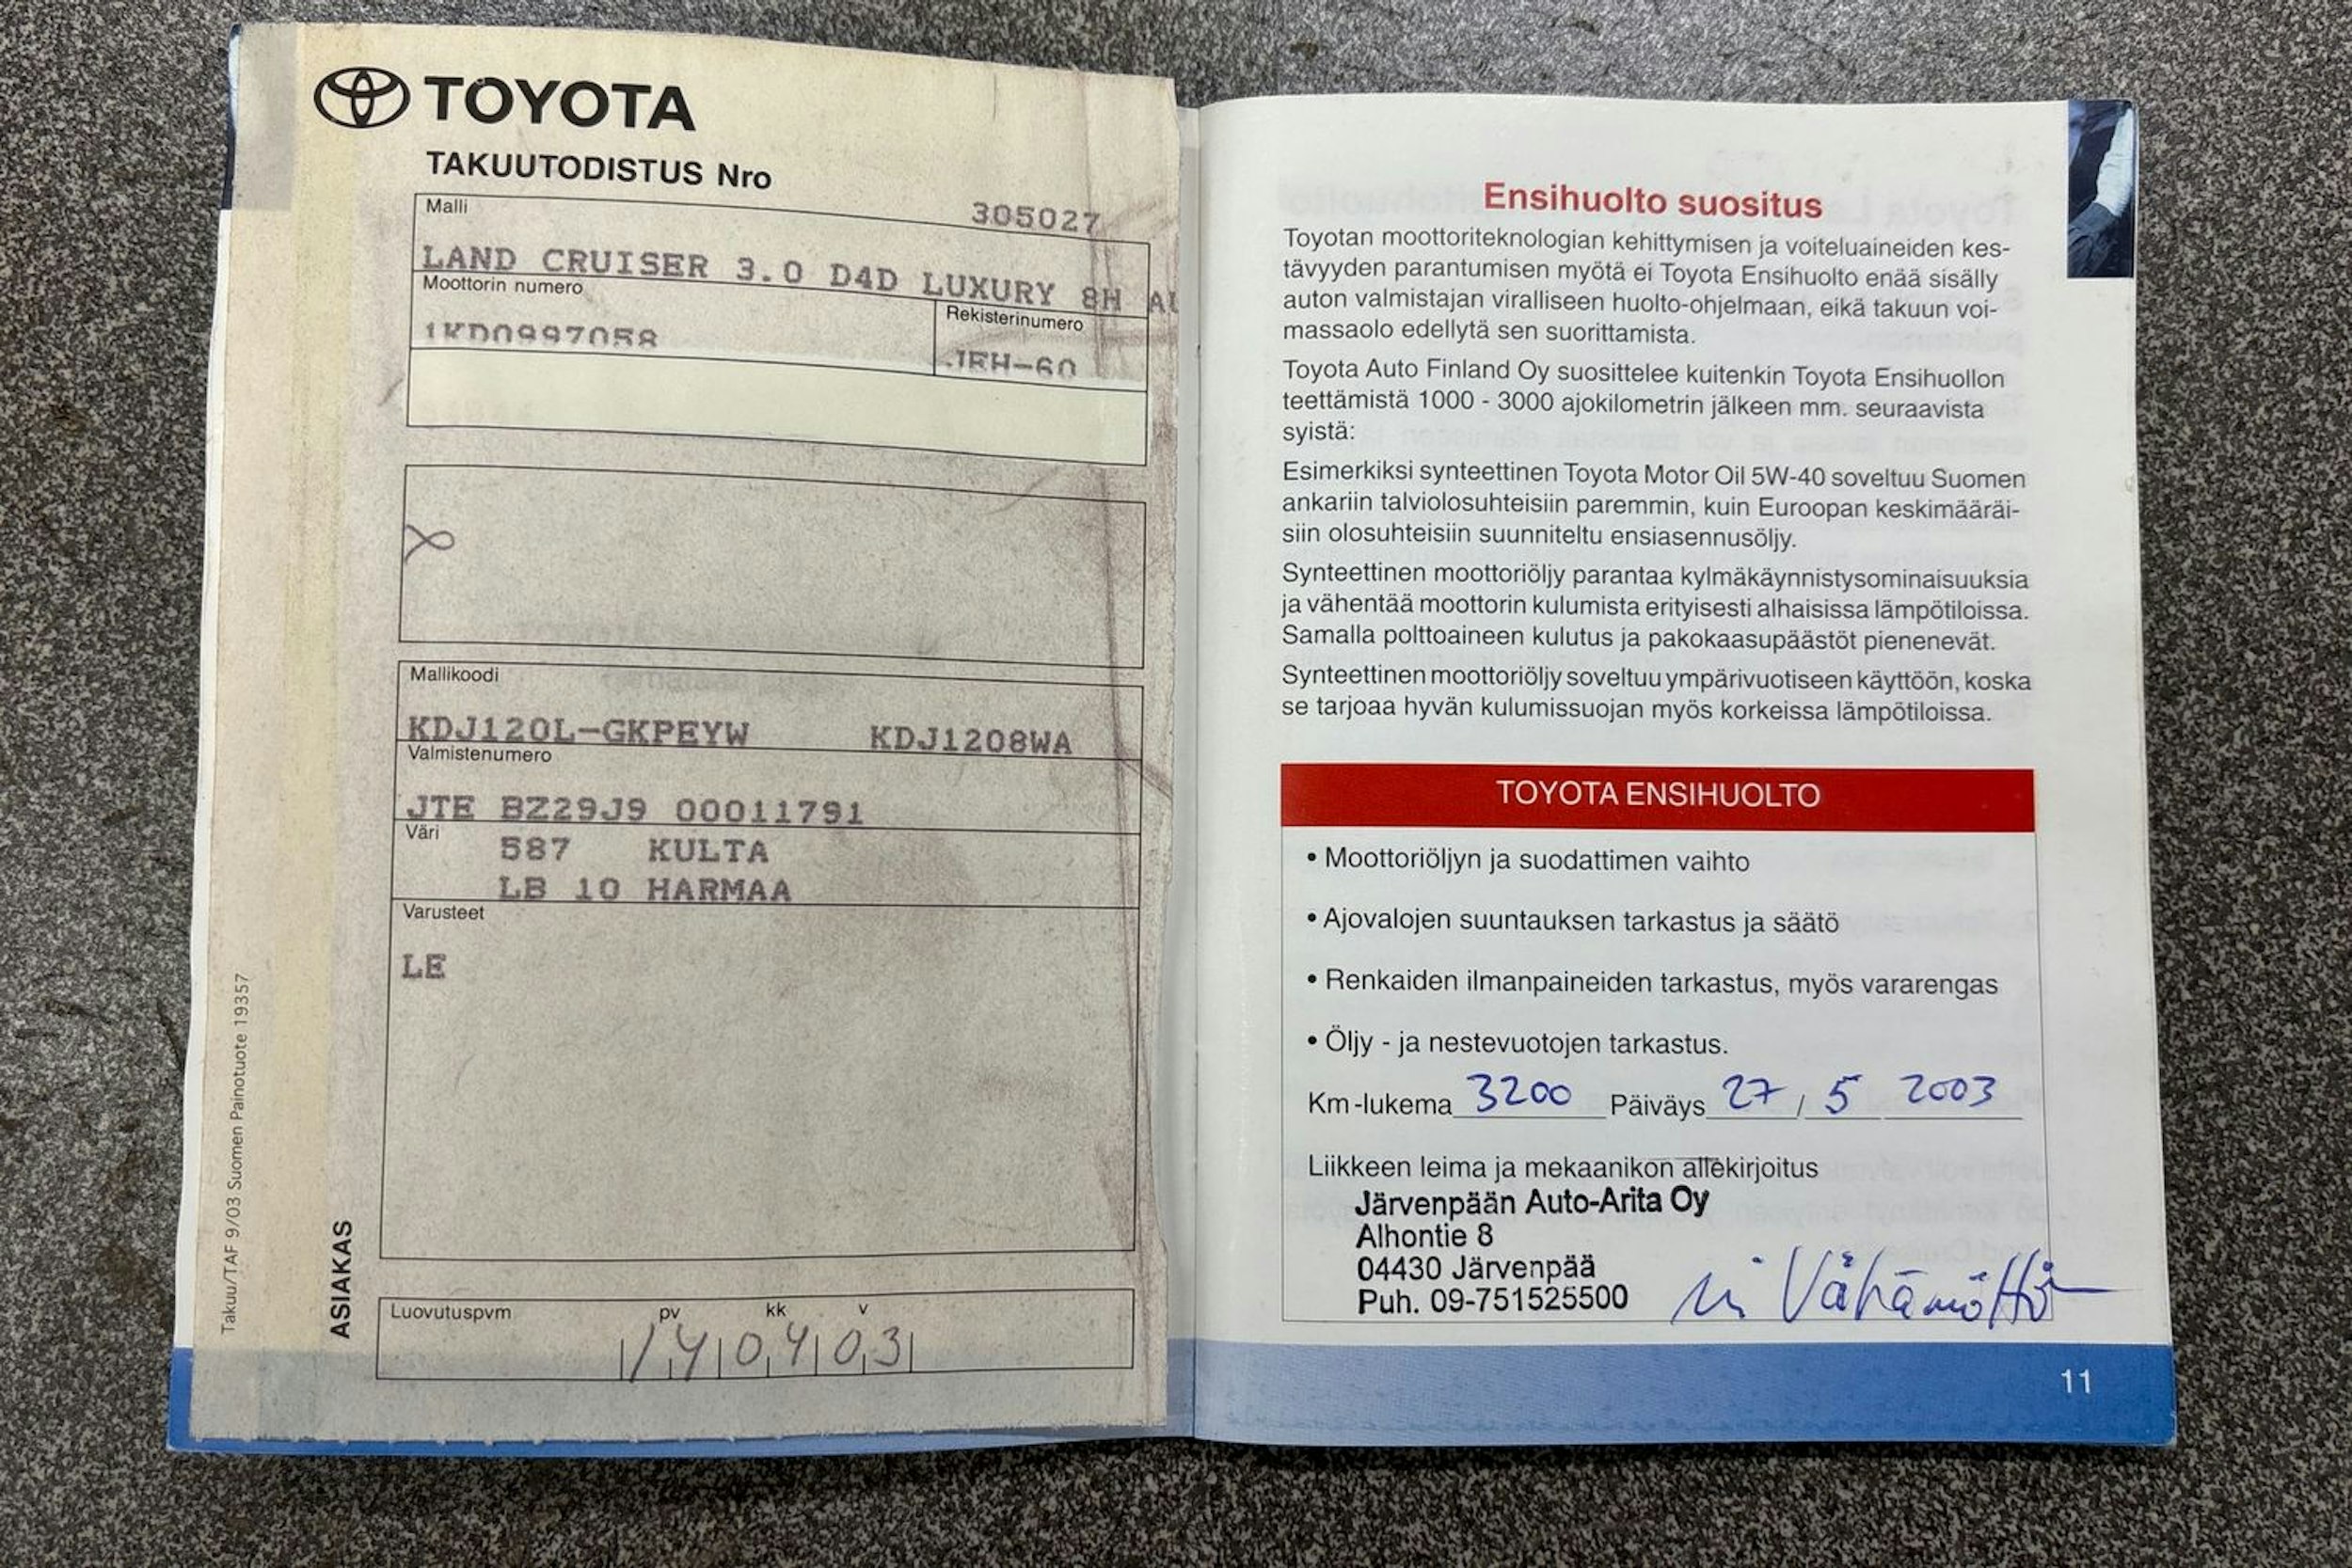 TOYOTA
TAKUUTODISTUS Nro
Malli
305027
LAND CRUISER 3.0 D4D LUXURY 8H
Moottorin numero
Rekisterinumero
1KD0997058
JEH-60
Mallikoodi
KDJ120L-GKPEYW KDJ1208WA
Valmistenumero
JTE BZ29J9 00011791
Väri
587 KULTA
LB 10 HARMAA
Varusteet
LE
Luovutuspvm pv kk v
14 04 03
ASIAKAS
Takuu/TAF 9/03 Suomen Painotuote 19357
Ensihuolto suositus
Toyotan moottoriteknologian kehittymisen ja voiteluaineiden kes-
tävyyden parantumisen myötä ei Toyota Ensihuolto enää sisälly
auton valmistajan viralliseen huolto-ohjelmaan, eikä takuun voi-
massaolo edellytä sen suorittamista.
Toyota Auto Finland Oy suosittelee kuitenkin Toyota Ensihuollon
teettämistä 1000 - 3000 ajokilometrin jälkeen mm. seuraavista
syistä:
Esimerkiksi synteettinen Toyota Motor Oil 5W-40 soveltuu Suomen
ankariin talviolosuhteisiin paremmin, kuin Euroopan keskimääräi-
siin olosuhteisiin suunniteltu ensiasennusöljy.
Synteettinen moottoriöljy parantaa kylmäkäynnistysominaisuuksia
ja vähentää moottorin kulumista erityisesti alhaisissa lämpötiloissa.
Samalla polttoaineen kulutus ja pakokaasupäästöt pienenevät.
Synteettinen moottoriöljy soveltuu ympärivuotiseen käyttöön, koska
se tarjoaa hyvän kulumissuojan myös korkeissa lämpötiloissa.
TOYOTA ENSIHUOLTO
• Moottoriöljyn ja suodattimen vaihto
• Ajovalojen suuntauksen tarkastus ja säätö
• Renkaiden ilmanpaineiden tarkastus, myös vararengas
• Öljy - ja nestevuotojen tarkastus.
Km-lukema 3200 Päiväys 27 / 5 2003
Liikkeen leima ja mekaanikon allekirjoitus
Järvenpään Auto-Arita Oy
Alhontie 8
04430 Järvenpää
Puh. 09-751525500
11